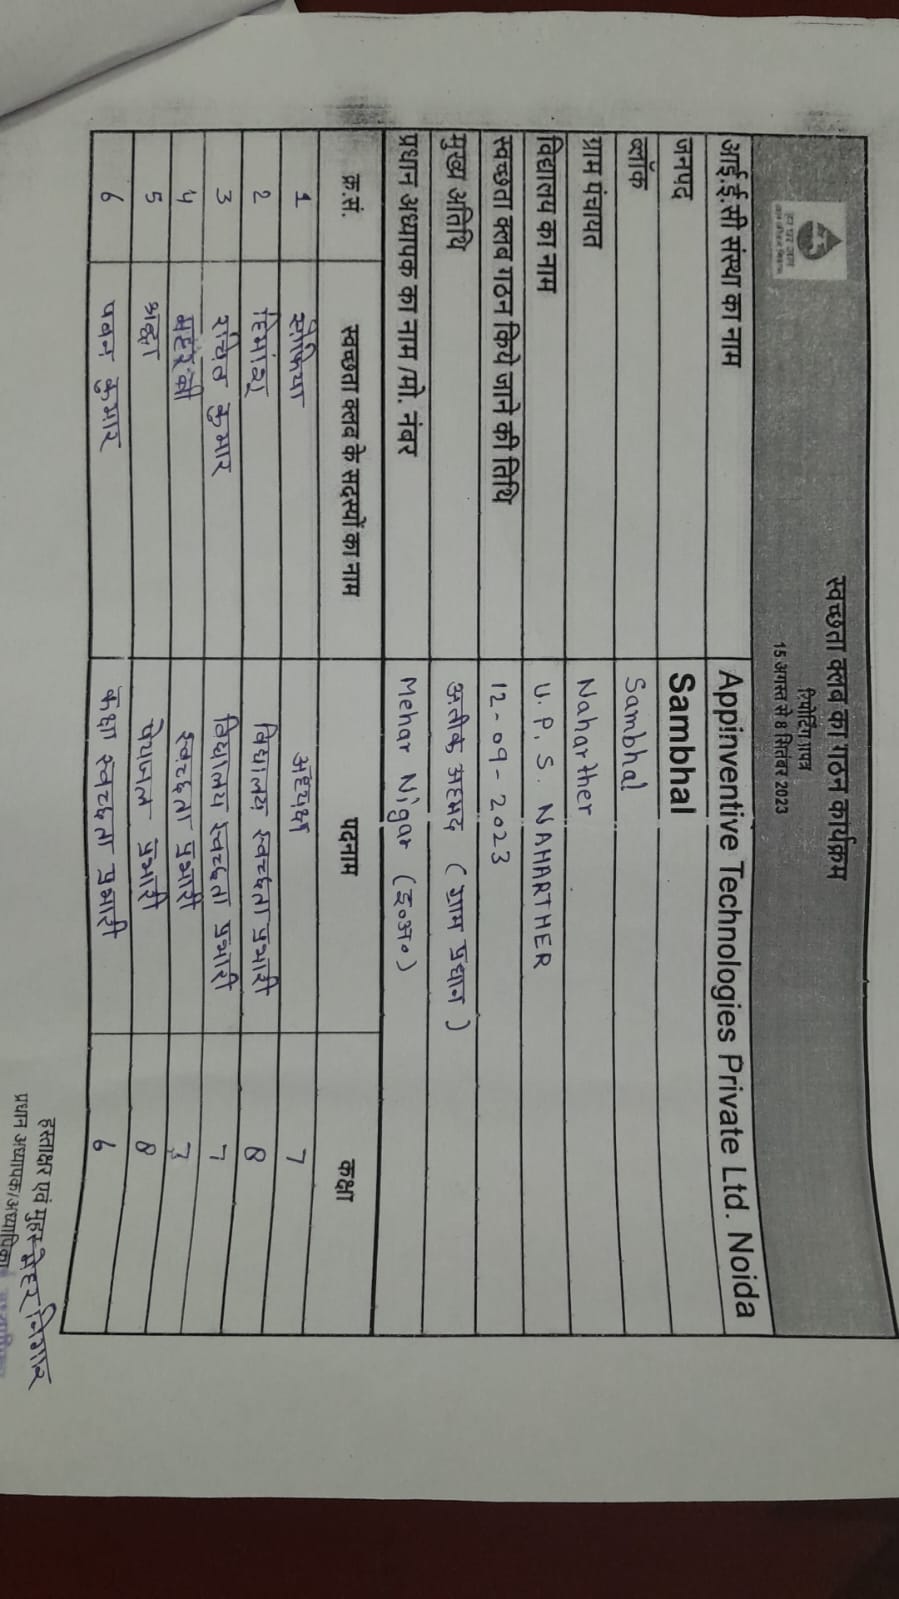 स्वच्छता क्लब का गठन कार्यक्रम
रिपोर्टिंग प्रपत्र
15 अगस्त से 8 सितंबर 2023
आई.ई.सी संस्था का नाम Appinventive Technologies Private Ltd. Noida
जनपद Sambhal
ब्लॉक Sambhal
ग्राम पंचायत Naharther
विद्यालय का नाम U.P.S. NAHARTHER
स्वच्छता क्लब गठन किये जाने की तिथि 12-09-2023
मुख्य अतिथि अतीक अहमद (ग्राम प्रधान)
प्रधान अध्यापक का नाम /मो. नंबर Mehar Nigar (इ०अ०)
क्र.सं. स्वच्छता क्लब के सदस्यों का नाम पदनाम कक्षा
1 सोफिया अध्यक्ष 7
2 हिमांशु विद्यालय स्वच्छता प्रभारी 8
3 रचित कुमार विद्यालय स्वच्छता प्रभारी 7
4 स्वच्छता प्रभारी 7
5 श्रद्धा पेयजल प्रभारी 8
6 पवन कुमार कक्षा स्वच्छता प्रभारी 6
हस्ताक्षर एवं मुहर मेहर निगार
प्रधान अध्यापक/अध्यापिका